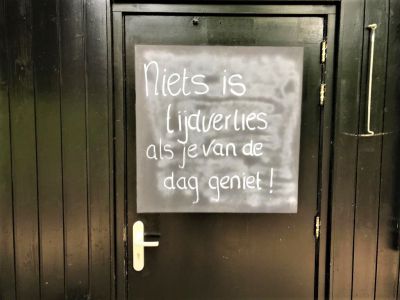 Niets is
tijdverlies
als je van de
dag geniet!